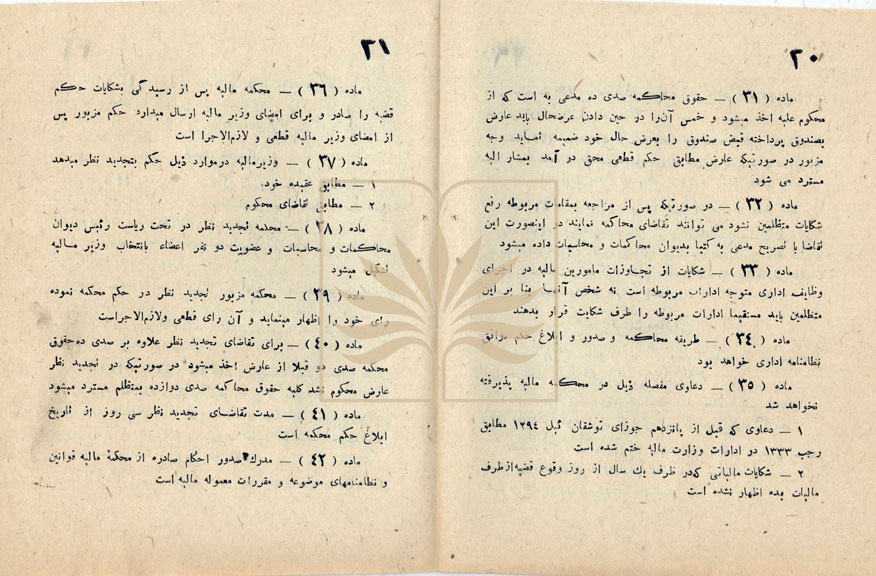 ۲۰
ماده ( ۳۱ ) — حقوق محاکمه صدی ده مدعی به است که از
محکوم علیه اخذ میشود و خمس آن را در حین دادن عرضحال باید عارض
بصندوق پرداخته قبض صندوق را بعرض حال خود ضمیمه نماید وجه
مزبور در صورتیکه عارض مطابق حکم قطعی محق در آمد بمشار الیه
مسترد می شود
ماده ( ۳۲ ) — در صورتیکه پس از مراجعه بمقامات مربوطه رفع
شکایات متظلمین نشود می توانند تقاضای محاکمه نمایند در اینصورت این
تقاضا با تصریح مدعی به کتبا بدیوان محاکمات و محاسبات داده میشود
ماده ( ۳۳ ) — شکایات از تجاوزات مامورین مالیه در اجرای
وظایف اداری متوجه ادارات مربوطه است نه شخص آنها بنا بر این
متظلمین باید مستقیما ادارات مربوطه را طرف شکایت قرار بدهند
ماده ( ۳٤ ) — طریقه محاکمه و صدور و ابلاغ حکم موافق
نظامنامه اداری خواهد بود
ماده ( ۳۵ ) — دعاوی مفصله ذیل در محکمه مالیه پذیرفته
نخواهد شد
۱ — دعاوی که قبل از پانزدهم جوزای توشقان ئیل ۱۲۹٤ مطابق
رجب ۱۳۳۳ در ادارات وزارت مالیه ختم شده است
۲ — شکایات مالیاتی که در ظرف یك سال از روز وقوع قضیه از طرف
مالیات بده اظهار نشده است
۲۱
ماده ( ۳۶ ) — محکمه مالیه پس از رسیدگی بشکایات حکم
قضیه را صادر و برای امضای وزیر مالیه ارسال میدارد حکم مزبور پس
از امضای وزیر مالیه قطعی و لازم الاجرا است
ماده ( ۳۷ ) — وزیر مالیه در موارد ذیل حکم بتجدید نظر میدهد
۱ — مطابق عقیده خود
۲ — مطابق تقاضای محکوم
ماده ( ۳۸ ) — محکمه تجدید نظر در تحت ریاست رئیس دیوان
محاکمات و محاسبات و عضویت دو نفر اعضاء بانتخاب وزیر مالیه
تشکیل میشود
ماده ( ۳۹ ) — محکمه مزبور تجدید نظر در حکم محکمه نموده
رای خود را اظهار مینماید و آن رای قطعی ولازم الاجراست
ماده ( ٤۰ ) — برای تقاضای تجدید نظر علاوه بر صدی ده حقوق
محکمه صدی دو قبلا از عارض اخذ میشود در صورتیکه در تجدید نظر
عارض محکوم نشد کلیه حقوق محاکمه صدی دوازده بمتظلم مسترد میشود
ماده ( ٤۱ ) — مدت تقاضای تجدید نظر سی روز از تاریخ
ابلاغ حکم محکمه است
ماده ( ٤۲ ) — مدرك صدور احکام صادره از محکمهٔ مالیه قوانین
و نظامنامهای موضوعه و مقررات معموله مالیه است